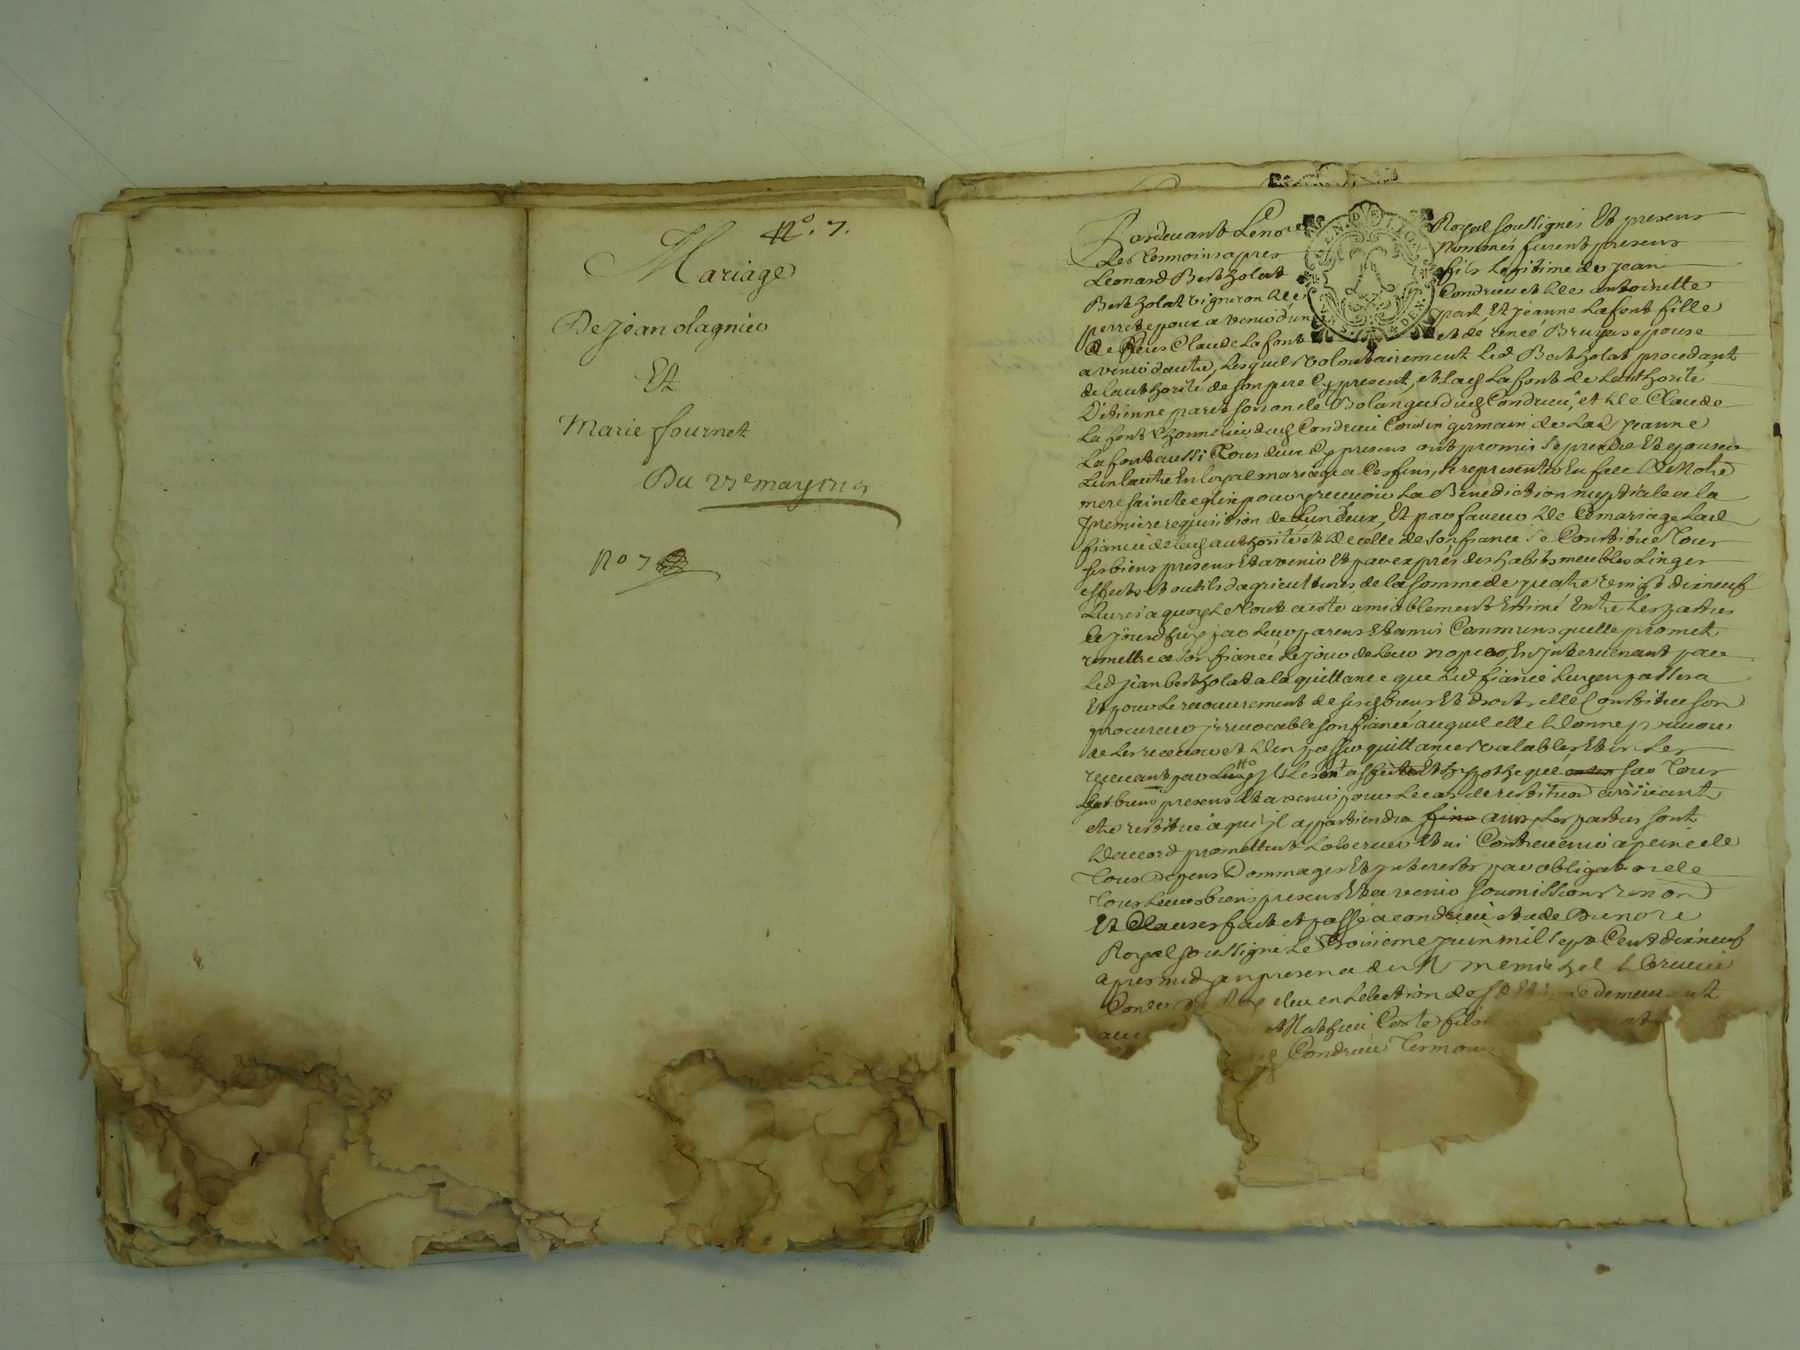 N°. 7.
Mariage
De Jean olagnier
Et
Marie fournet
Du may 1719
N° 7
Pardevant Le no.re Royal soussignés Et presens
Les Temoins apres Nommés furent presens
Leonard Bertholat fils Legitime de Jean
Bertholat vigneron de Condrieu et de antoinette
perret epoux a venir d'une part, Et Jeanne Lafont fille
de Claude Lafont et de renée Bruyas epouse
a venir d'autre, Lesquels volontairement Led Bertholat procedant
de Lauthorité de son pere Cy present, et Lad Lafont de Lauthorité
D'étienne paret son oncle Bolanger dud Condrieu, et de Claude
Lafont dud Condrieu Cousin germain de Lad Jeanne
Lafont aussi Tous deux Cy presens ont promis Se prendre Et epouser
L'un Lautre En Loyal mariage a Ces fins, Se representer En face de Notre
mere saincte eglise pour y recevoir La Benediction nuptiale a la
premiere requisition de Lun deux, Et par faveur de Ce mariage Lad
fiancée de lad authorité et de celle de son fiancé Se Constitue Tous
ses biens presens Et a venir Et par exprés des habits meubles Linges
effects et outils d'agriculture, de la somme de quatre vingt dixneuf
Livres a quoy Le Tout a esté amiablement Estimé Entre Les parties
Ce Jourdhuy par Leurs parens Et amis Communs quelle promet
remettre a son fiancé Le jour de Leur nopces, En Intervenant par
Led Jean bertholat a la quittance que Led fiancé Luy en passera
Et pour Le recouvrement de ses biens Et droits elle Constitue son
procureur irrevocable son fiancé auquel elle Donne pouvoir
de Les recevoir et D'en passer quittances valables Et en Les
recevant par Luy Il Les affecte Et hypotheque sur Tous
Ses biens presens Et a venir pour Le cas de restitution arrivant
etre restitué a qui il appartiendra ainsy Les parties sont
D'accord promettent Lobserver Et ni Contrevenir a peine de
Tous Depens Dommages Et Interests par obligation de
Tous Leurs biens presens Et a venir soumissions renon
Et Clauses fait et passé a condrieu etude Du no.re
Royal soussigné Le Troisieme juin mil sept Cent dixneuf
apres midy en presence de
elu en Lelection de St Etienne demeurant
Mathieu Coste fils
Condrieu Temoins